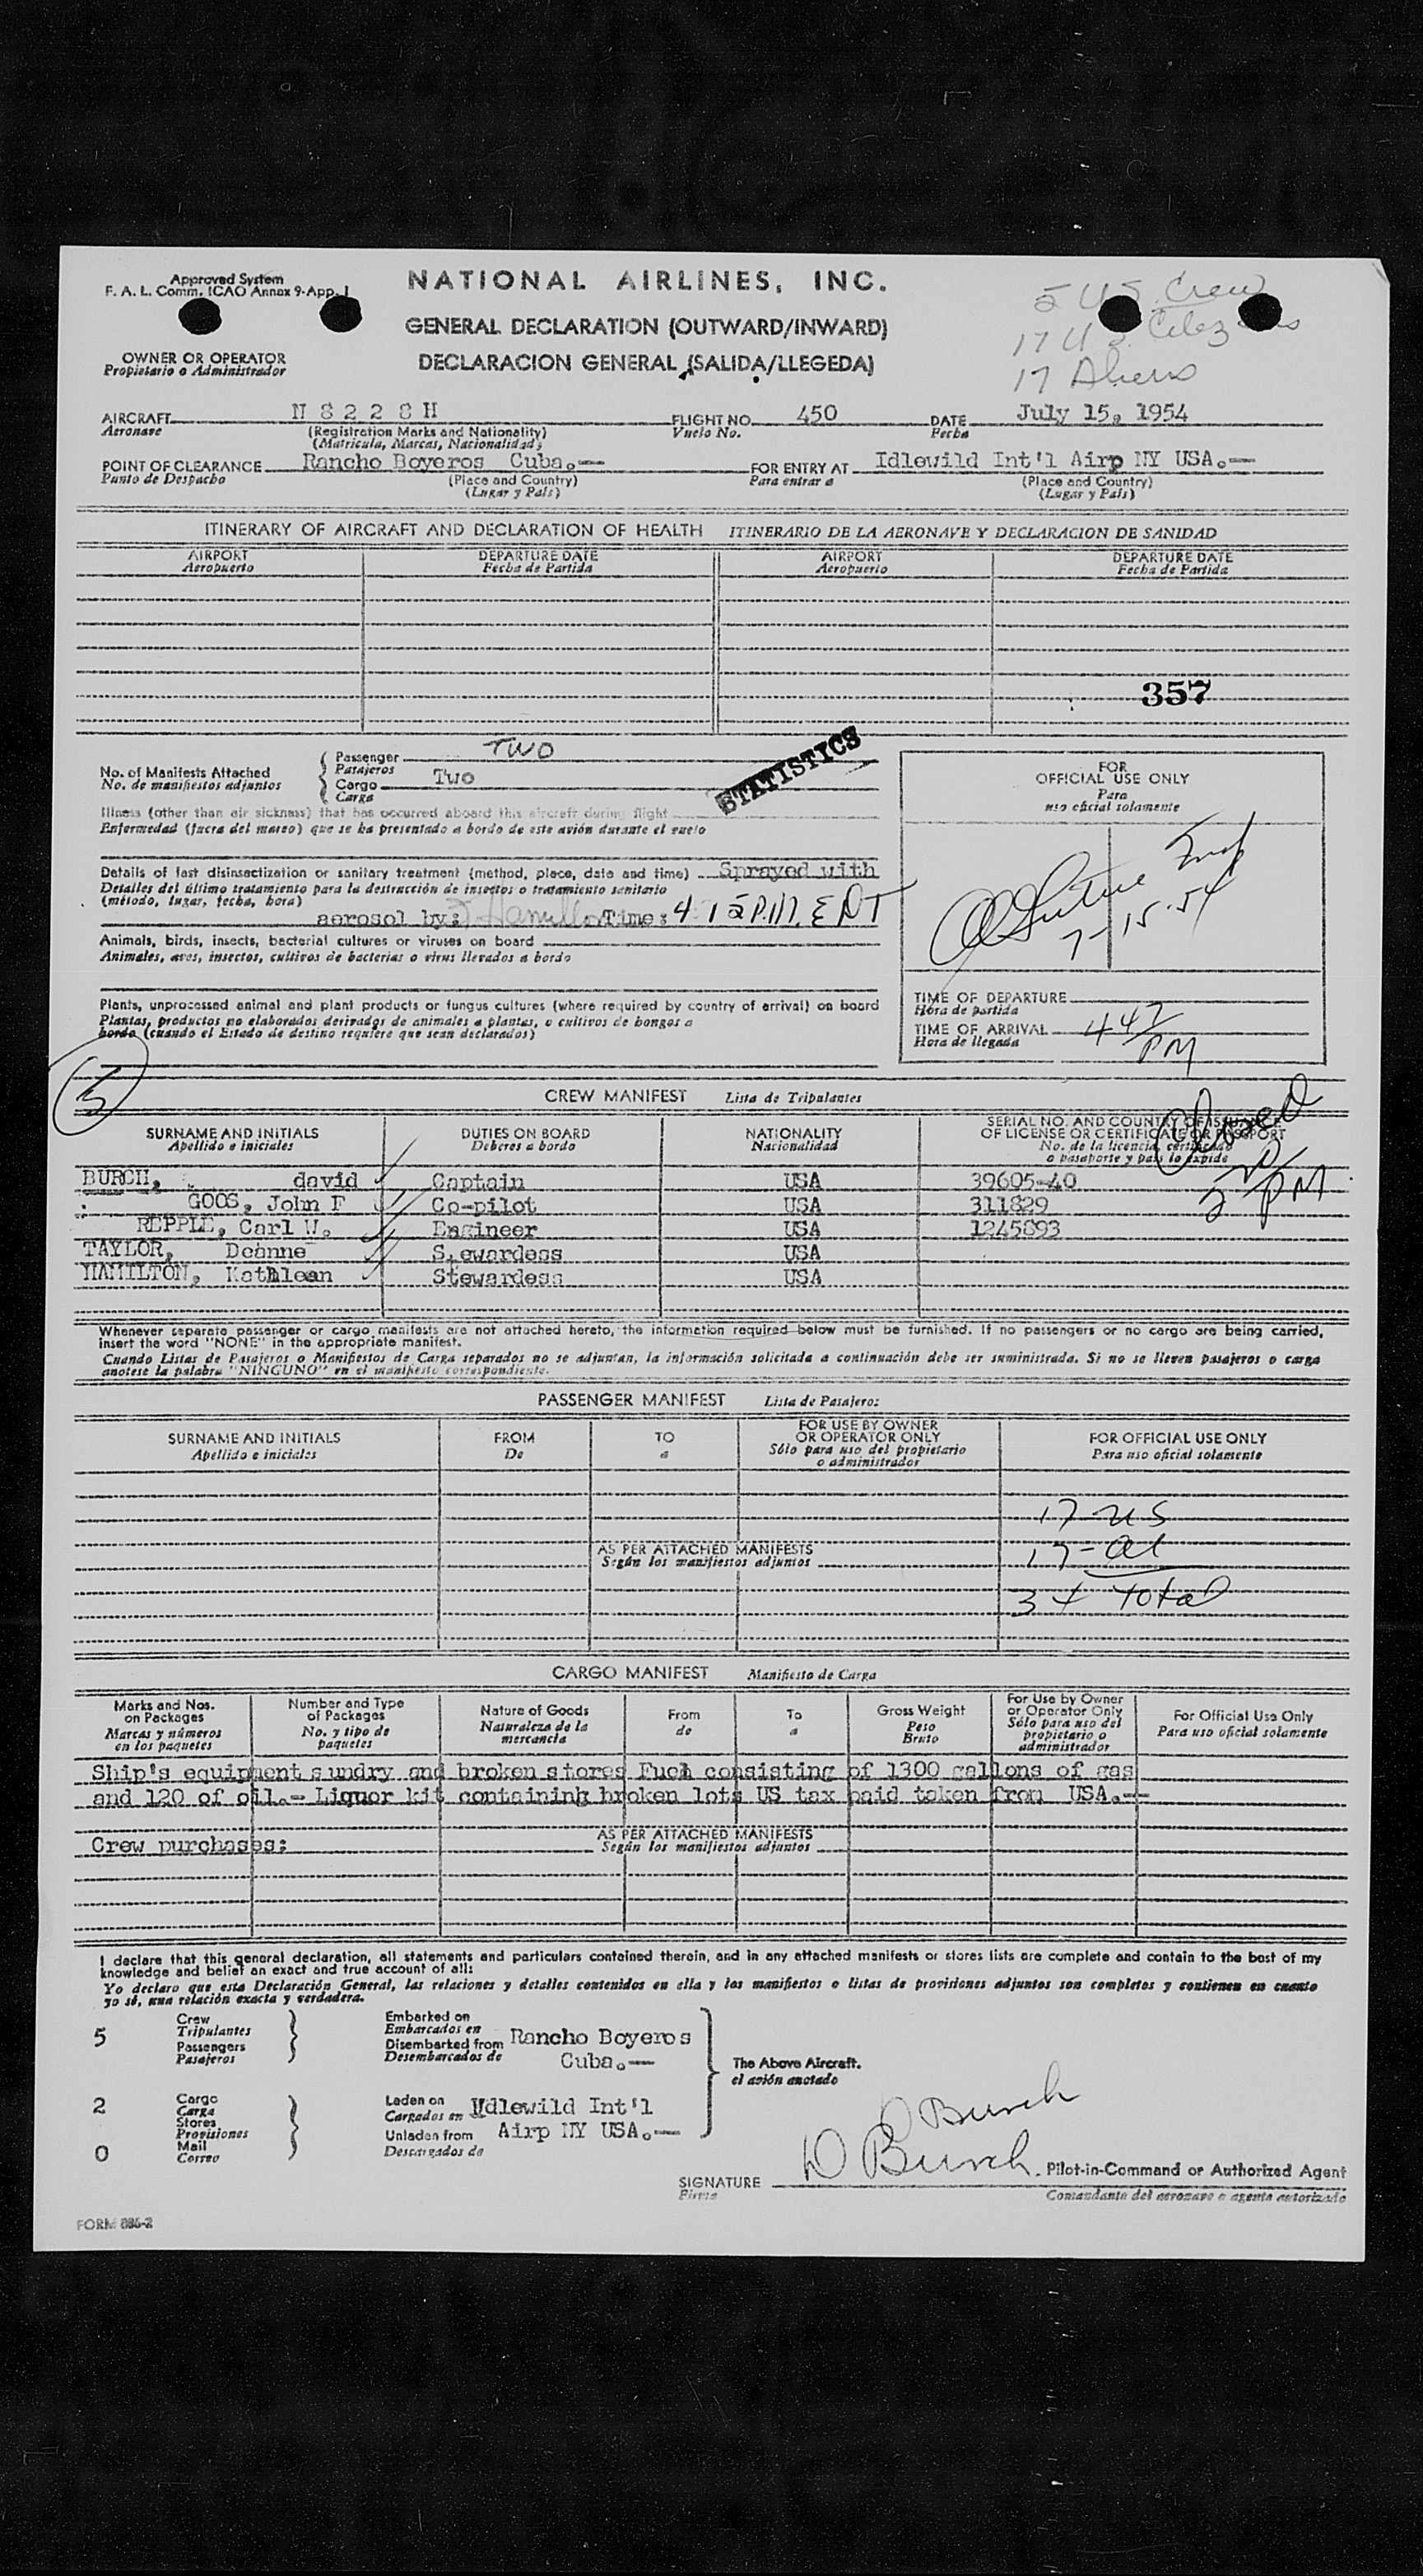 Approved System
F. A. L. Comm. ICAO Annex 9-App. I
NATIONAL AIRLINES, INC.
GENERAL DECLARATION (OUTWARD/INWARD)
DECLARACION GENERAL (SALIDA/LLEGEDA)
5 US Crew
17 U S.
17 Aliens
OWNER OR OPERATOR
Propietario o Administrador
AIRCRAFT N 8 2 2 8 H FLIGHT NO. 450 DATE July 15, 1954
Aeronave (Registration Marks and Nationality) Vuelo No. Fecha
(Matricula, Marcas, Nacionalidad)
POINT OF CLEARANCE Rancho Boyeros Cuba.— FOR ENTRY AT Idlewild Int'l Airp NY USA.—
Punto de Despacho (Place and Country) Para entrar a (Place and Country)
(Lugar y País) (Lugar y País)
ITINERARY OF AIRCRAFT AND DECLARATION OF HEALTH ITINERARIO DE LA AERONAVE Y DECLARACION DE SANIDAD
AIRPORT DEPARTURE DATE AIRPORT DEPARTURE DATE
Aeropuerto Fecha de Partida Aeropuerto Fecha de Partida
357
No. of Manifests Attached
No. de manifiestos adjuntos
Passenger TWO
Pasajeros
Cargo Two
Carga
STATISTICS
Illness (other than air sickness) that has occurred aboard this aircraft during flight
Enfermedad (fuera del mareo) que se ha presentado a bordo de este avión durante el vuelo
Details of last disinsectization or sanitary treatment (method, place, date and time) Sprayed with
Detalles del último tratamiento para la destrucción de insectos o tratamiento sanitario
(método, lugar, fecha, hora)
aerosol by: Time: 4 15 P.M. EDT
Animals, birds, insects, bacterial cultures or viruses on board
Animales, aves, insectos, cultivos de bacterias o virus llevados a bordo
Plants, unprocessed animal and plant products or fungus cultures (where required by country of arrival) on board
Plantas, productos no elaborados derivados de animales a plantas, o cultivos de hongos a
bordo (cuando el Estado de destino requiere que sean declarados)
FOR
OFFICIAL USE ONLY
Para
uso oficial solamente
7-15-54
TIME OF DEPARTURE
Hora de partida
TIME OF ARRIVAL 447 PM
Hora de llegada
5
CREW MANIFEST Lista de Tripulantes
Closed
PM
SURNAME AND INITIALS DUTIES ON BOARD NATIONALITY SERIAL NO. AND COUNTRY OF ISSUANCE OF LICENSE OR CERTIFICATE OR PASSPORT
Apellido e iniciales Deberes a bordo Nacionalidad No. de la licencia, certificado o pasaporte y país lo expide
BURCH, david Captain USA 39605-40
GOOS, John F Co-pilot USA 311829
REPPLE, Carl W. Engineer USA 1245893
TAYLOR, Deanne S.ewardess USA
HAMILTON, Kathleen Stewardess USA
Whenever separate passenger or cargo manifests are not attached hereto, the information required below must be furnished. If no passengers or no cargo are being carried,
insert the word "NONE" in the appropriate manifest.
Cuando Listas de Pasajeros o Manifiestos de Carga separados no se adjuntan, la información solicitada a continuación debe ser suministrada. Si no se lleven pasajeros o carga
anotese la palabra "NINGUNO" en el manifiesto correspondiente.
PASSENGER MANIFEST Lista de Pasajeros
SURNAME AND INITIALS FROM TO FOR USE BY OWNER OR OPERATOR ONLY FOR OFFICIAL USE ONLY
Apellido e iniciales De a Sólo para uso del propietario o administrador Para uso oficial solamente
17 US
AS PER ATTACHED MANIFESTS 17-al
Según los manifiestos adjuntos
34 Total
CARGO MANIFEST Manifiesto de Carga
Marks and Nos. on Packages Number and Type of Packages Nature of Goods From To Gross Weight For Use by Owner or Operator Only For Official Use Only
Marcas y números en los paquetes No. y tipo de paquetes Naturaleza de la mercancía de a Peso Bruto Sólo para uso del propietario o administrador Para uso oficial solamente
Ship's equipment sundry and broken stores Fuel consisting of 1300 gallons of gas
and 120 of oil.— Liquor kit containing broken lots US tax paid taken from USA.—
Crew purchases: AS PER ATTACHED MANIFESTS
Según los manifiestos adjuntos
I declare that this general declaration, all statements and particulars contained therein, and in any attached manifests or stores lists are complete and contain to the best of my
knowledge and belief an exact and true account of all:
Yo declaro que esta Declaración General, las relaciones y detalles contenidos en ella y los manifiestos o listas de provisiones adjuntos son completos y contienen en cuanto
yo sé, una relación exacta y verdadera.
5 Crew Embarked on
Tripulantes Embarcados en
Passengers Disembarked from Rancho Boyeros
Pasajeros Desembarcados de Cuba.—
The Above Aircraft.
el avión anotado
2 Cargo Laden on Idlewild Int'l
Carga Cargados en
Stores
Provisiones Unladen from Airp NY USA.—
0 Mail Descargados de
Correo
D Burch
SIGNATURE D Burch Pilot-in-Command or Authorized Agent
Firma Comandante del aeronave o agente autorizado
FORM 886-2